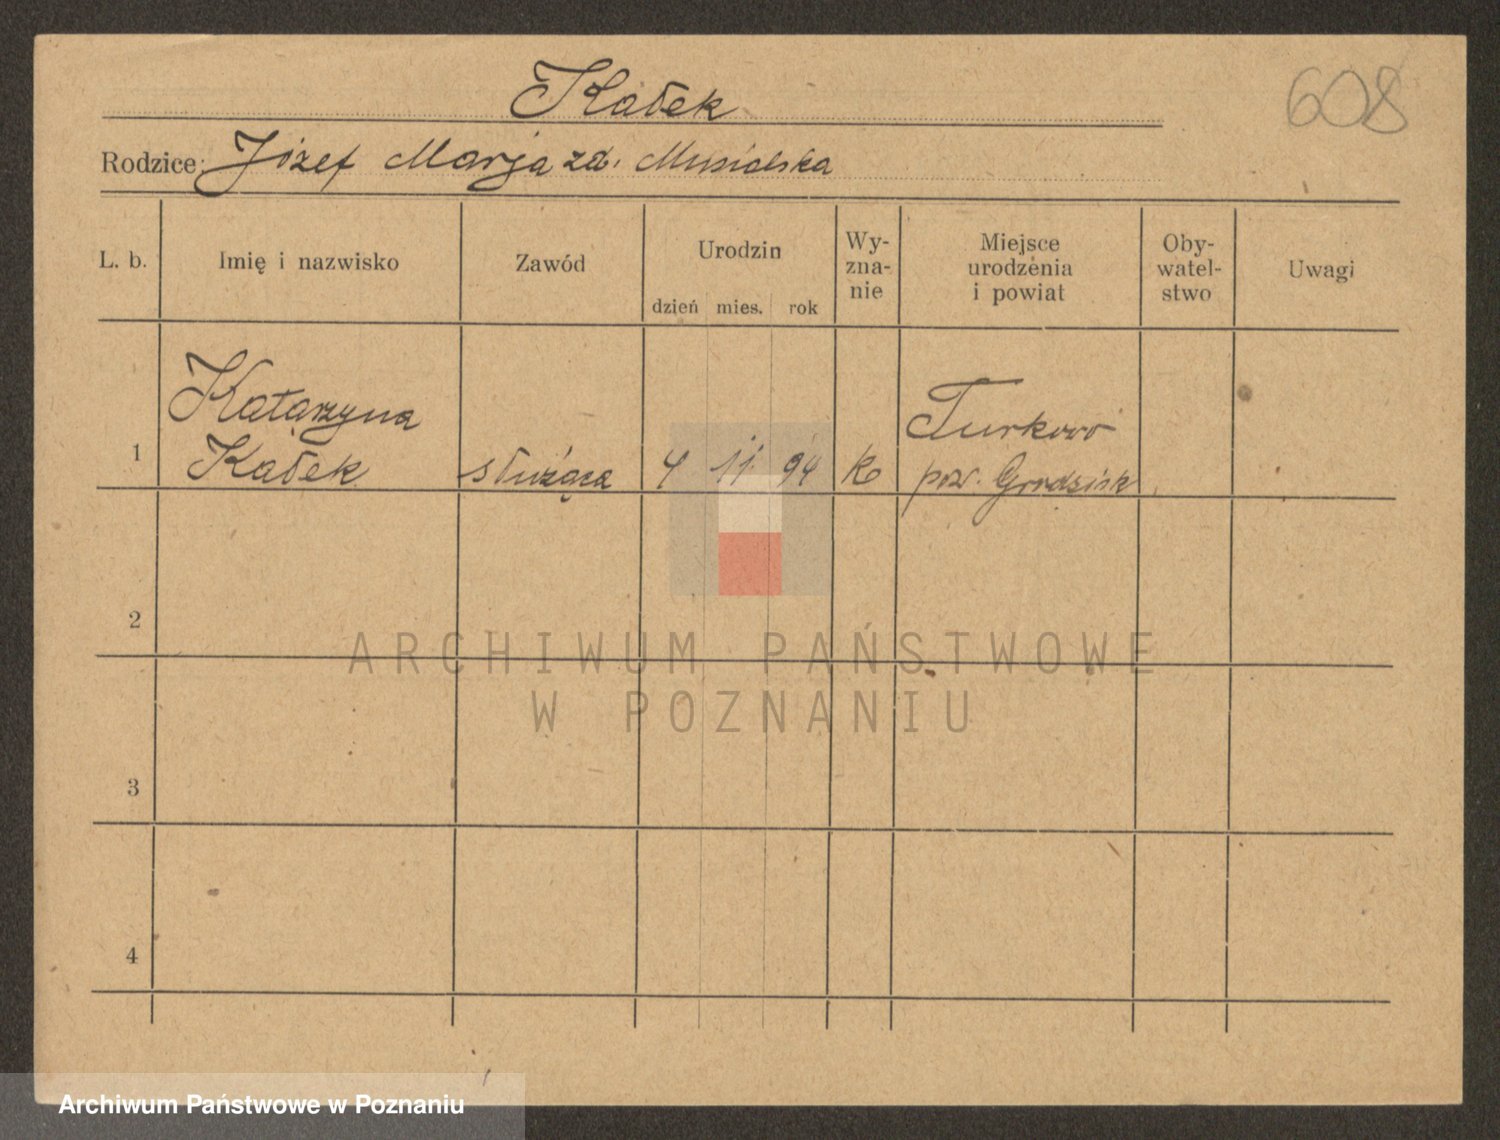 Kałek
608
Rodzice: Józef Marja zd. Musialska
L. b.
Imię i nazwisko
Zawód
Urodzin
dzień mies. rok
Wy-
zna-
nie
Miejsce
urodzenia
i powiat
Oby-
watel-
stwo
Uwagi
1
Katarzyna
Kałek
służąca
4 11. 94
k
Turkowo
pow. Grodzisk
2
3
4
ARCHIWUM PAŃSTWOWE
W POZNANIU
Archiwum Państwowe w Poznaniu